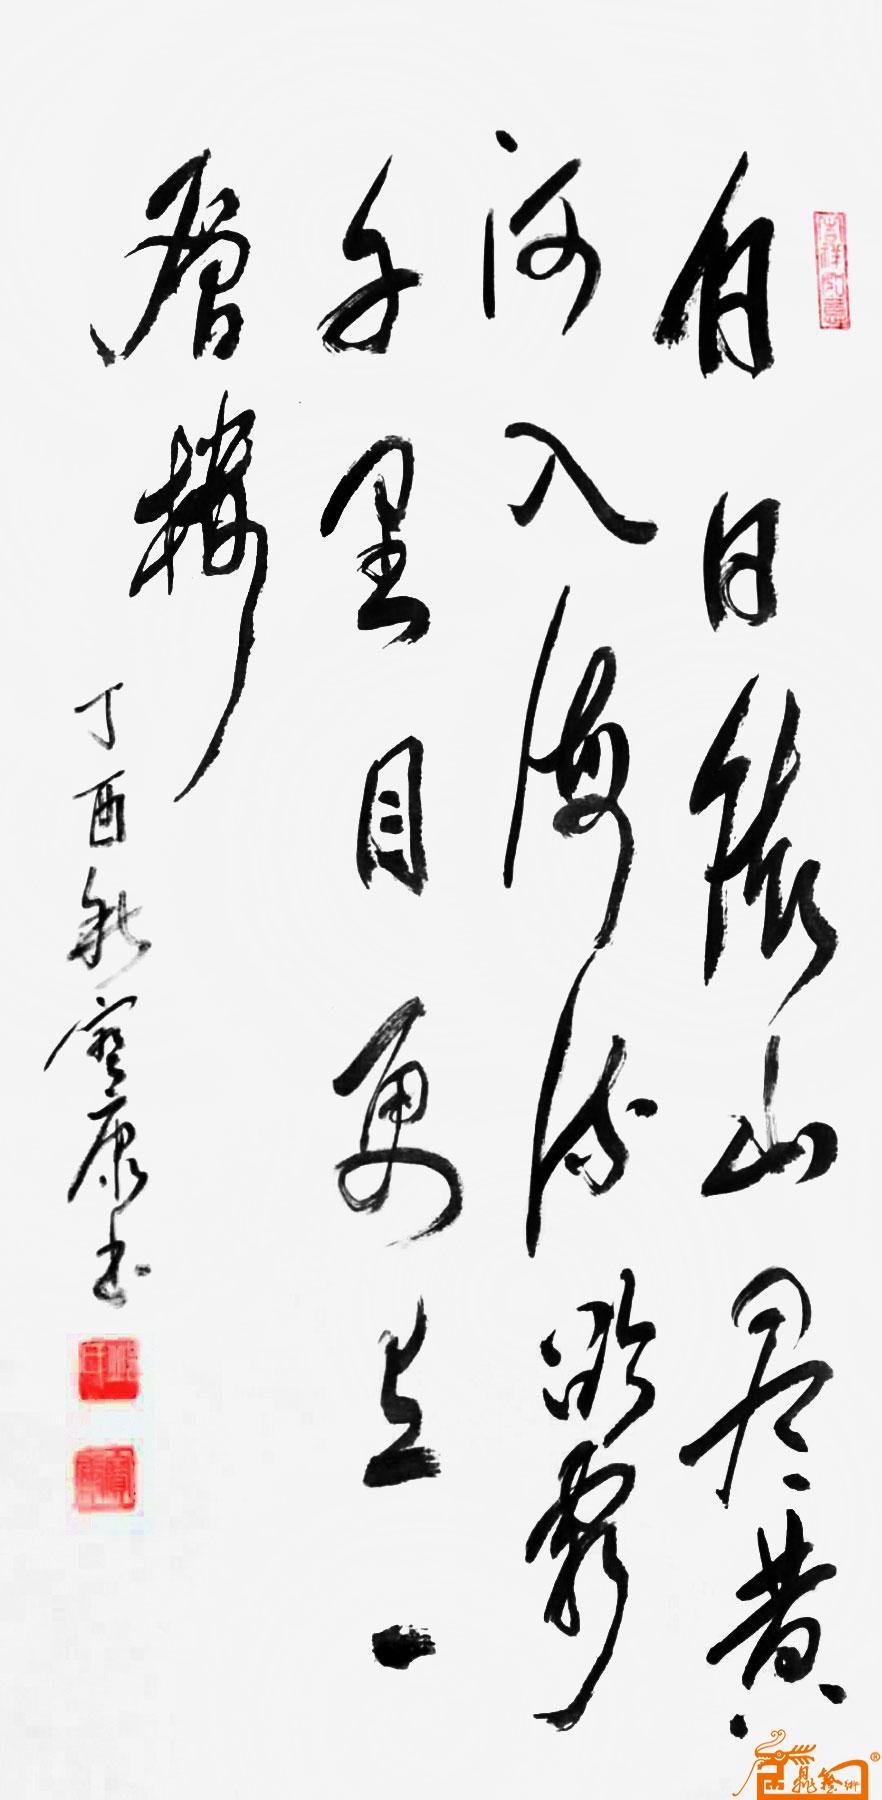 白日依山尽黄
河入海流欲穷
千里目更上一
层楼
丁酉秋宝康书
吉祥如意